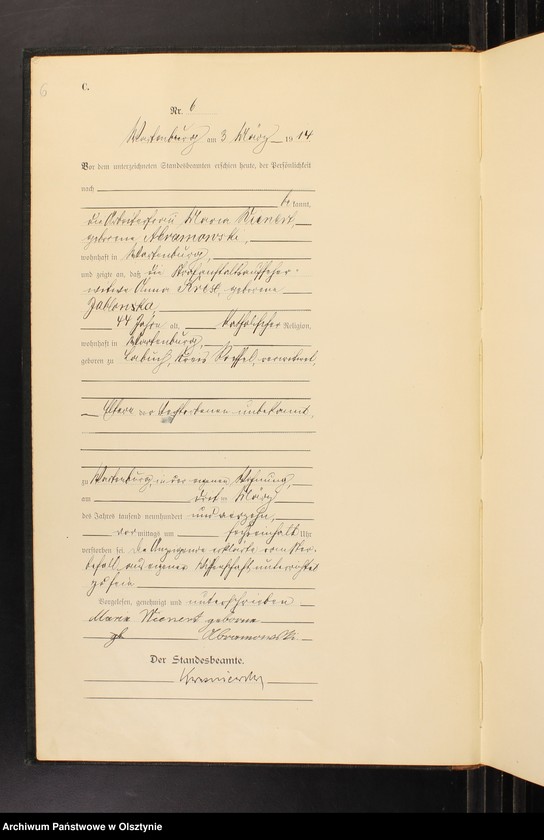 6
C.
Nr. 6
Wartenburg am 3 März 1914
Vor dem unterzeichneten Standesbeamten erschien heute, der Persönlichkeit
nach
bekannt,
die Arbeiterfrau Maria Kienert,
geborene Abramowski,
wohnhaft in Wartenburg,
und zeigte an, daß die Strafanstaltsaufseher-
witwe Anna Krest, geborene
Jablonska,
44 Jahre alt, katholischer Religion,
wohnhaft in Wartenburg,
geboren zu Labuch, Kreis Rößel, verwitwet,
Eltern der Verstorbenen unbekannt,
zu Wartenburg, in der eigenen Wohnung,
am dritten März
des Jahres tausend neunhundert und vierzehn,
vormittags um sechseinhalb Uhr
verstorben sei. Die Anzeigende erklärte vom Ster-
befall aus eigener Wissenschaft unterrichtet
zu sein
Vorgelesen, genehmigt und unterschrieben
Maria Kienert geborene
Abramowski
Der Standesbeamte.
Archiwum Państwowe w Olsztynie